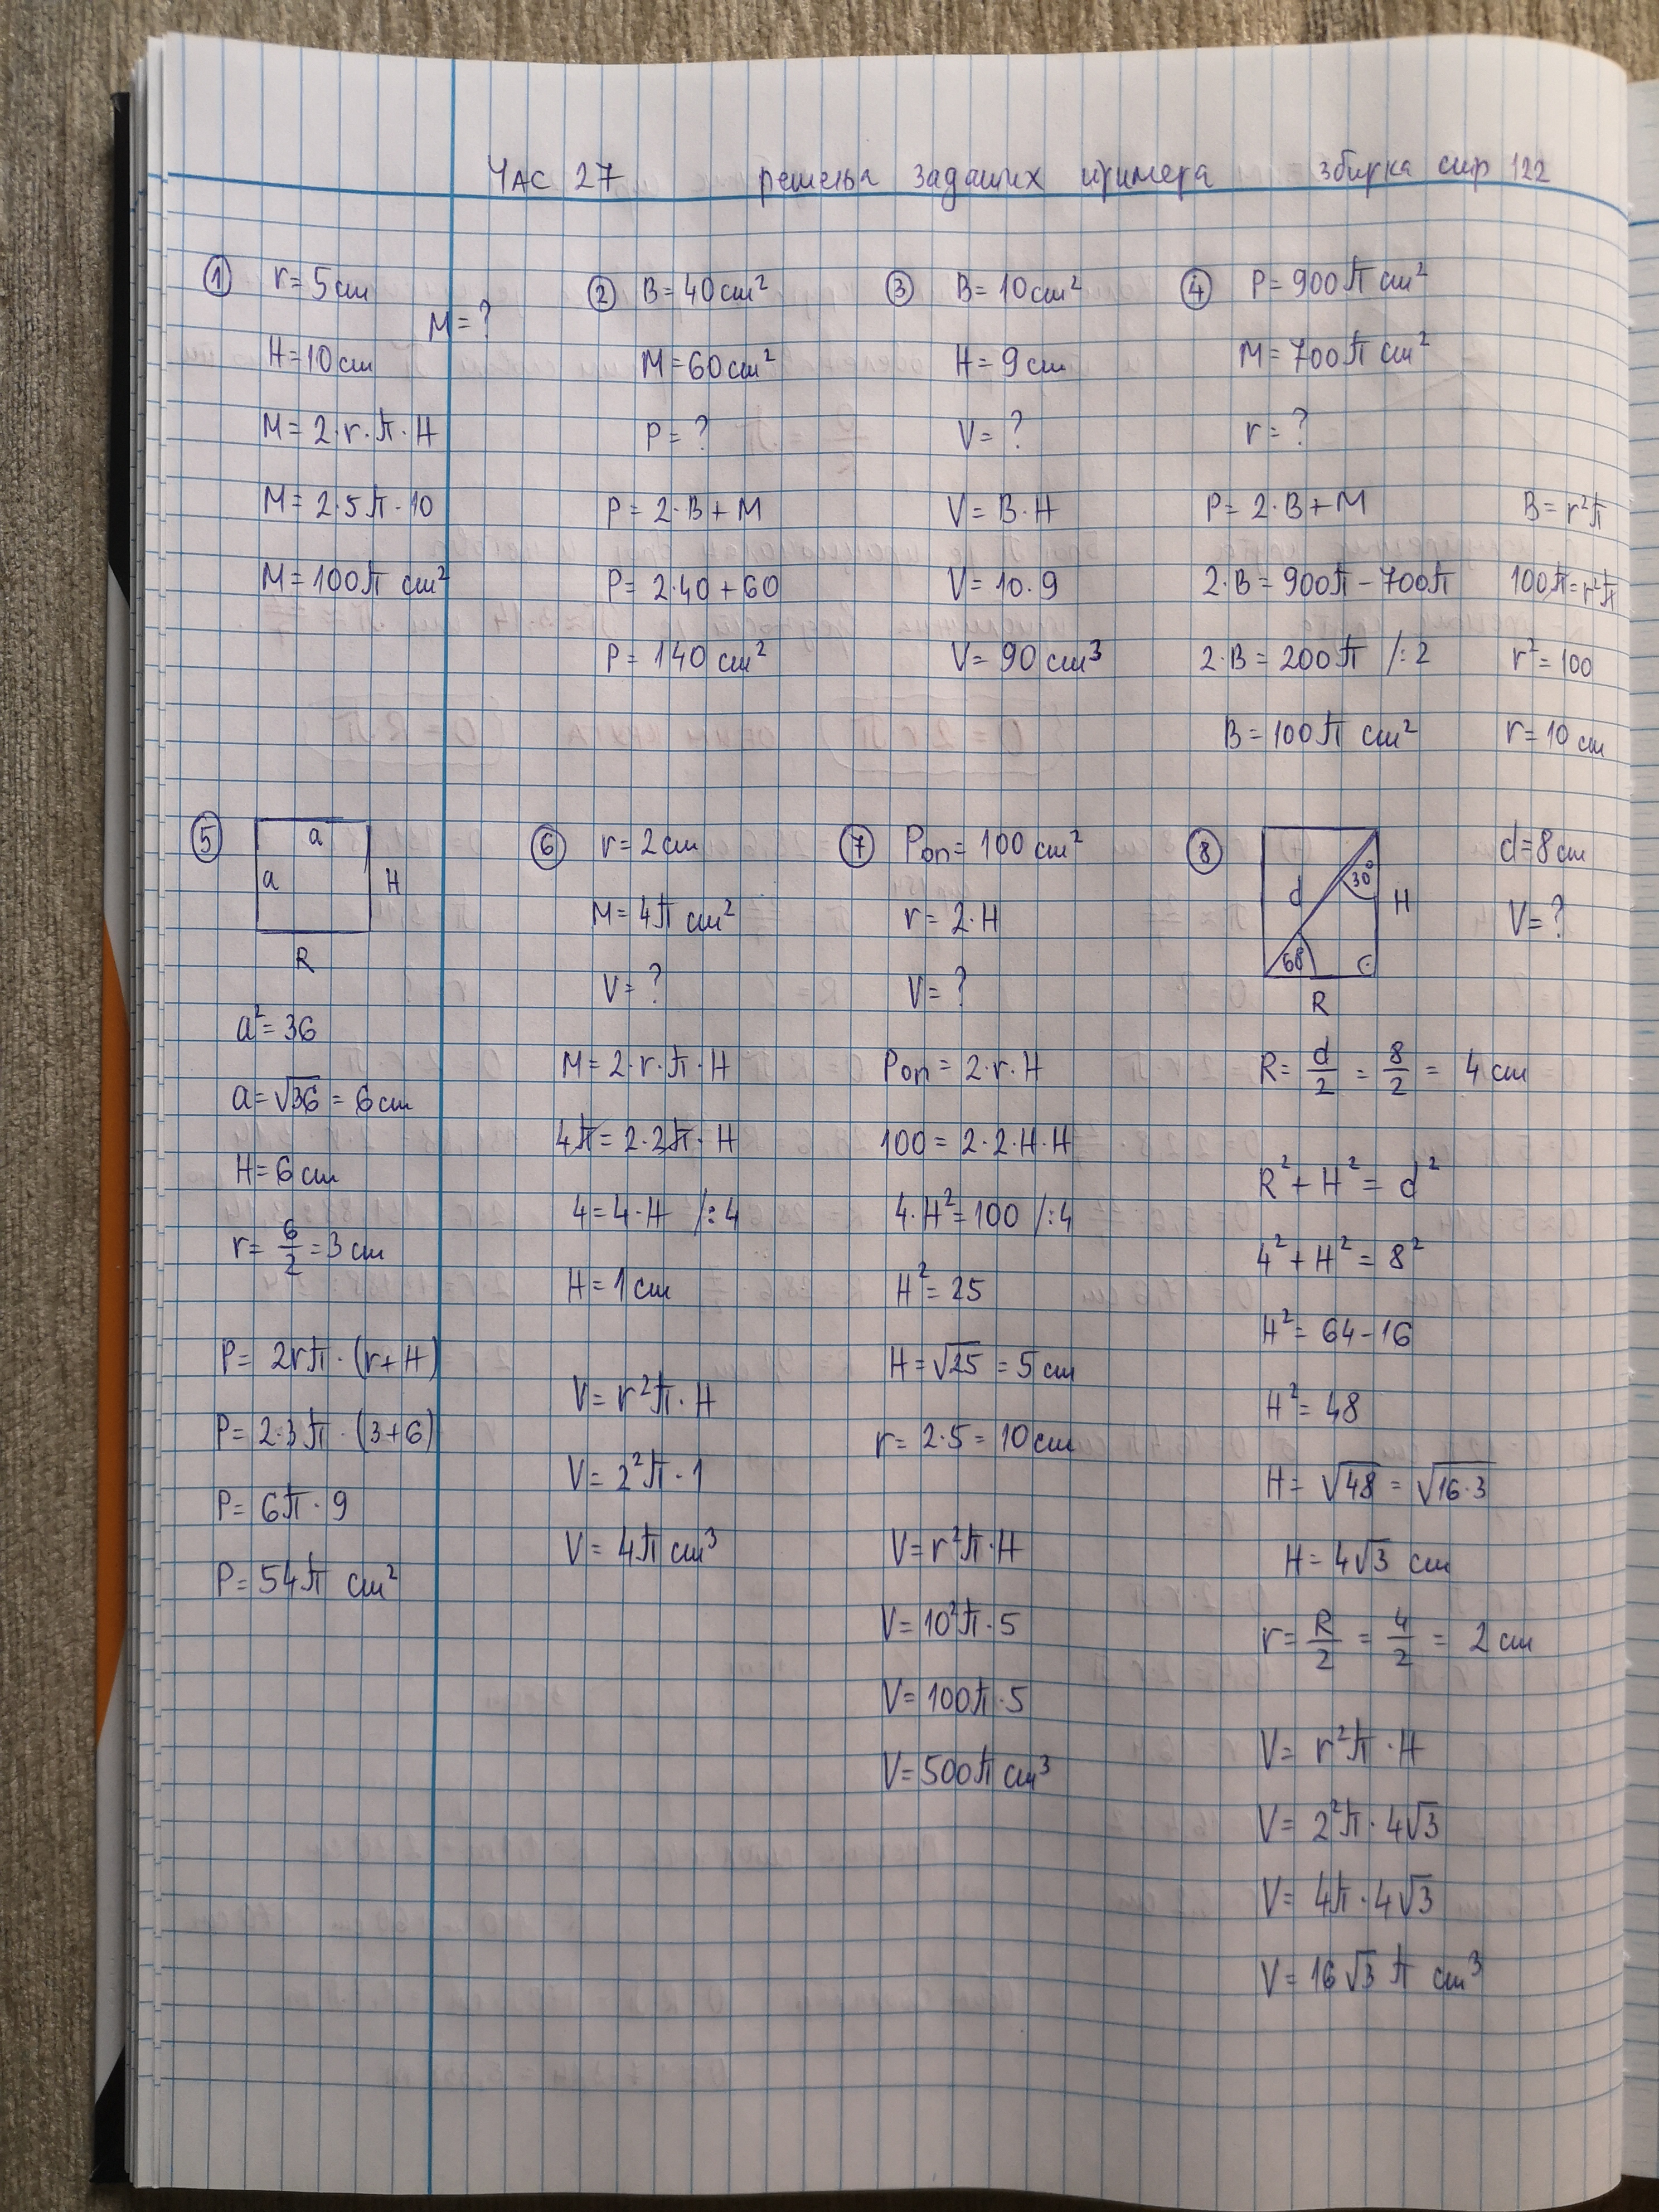 Час 27 решења задатих примера збирка стр 122
① r = 5 cm
M = ?
H = 10 cm
M = 2·r·π·H
M = 2·5π·10
M = 100π cm²
② B = 40 cm²
M = 60 cm²
P = ?
P = 2·B + M
P = 2·40 + 60
P = 140 cm²
③ B = 10 cm²
H = 9 cm
V = ?
V = B·H
V = 10·9
V = 90 cm³
④ P = 900π cm²
M = 700π cm²
r = ?
P = 2·B + M
2·B = 900π − 700π
2·B = 200π /:2
B = 100π cm²
B = r²π
100π = r²π
r² = 100
r = 10 cm
⑤ a
a H
R
a² = 36
a = √36 = 6 cm
H = 6 cm
r = 6/2 = 3 cm
P = 2rπ·(r + H)
P = 2·3π·(3+6)
P = 6π·9
P = 54π cm²
⑥ r = 2 cm
M = 4π cm²
V = ?
M = 2·r·π·H
4π = 2·2π·H
4 = 4·H /:4
H = 1 cm
V = r²π·H
V = 2²π·1
V = 4π cm³
⑦ Pоп = 100 cm²
r = 2·H
V = ?
Pоп = 2·r·H
100 = 2·2·H·H
4·H² = 100 /:4
H² = 25
H = √25 = 5 cm
r = 2·5 = 10 cm
V = r²π·H
V = 10²π·5
V = 100π·5
V = 500π cm³
⑧ d = 8 cm
30°
d H
V = ?
R
R = d/2 = 8/2 = 4 cm
R² + H² = d²
4² + H² = 8²
H² = 64 − 16
H² = 48
H = √48 = √16·3
H = 4√3 cm
r = R/2 = 4/2 = 2 cm
V = r²π·H
V = 2²π·4√3
V = 4π·4√3
V = 16√3 π cm³